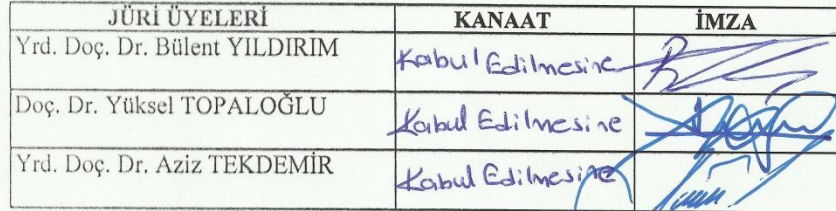 JÜRİ ÜYELERİ KANAAT İMZA
Yrd. Doç. Dr. Bülent YILDIRIM Kabul Edilmesine
Doç. Dr. Yüksel TOPALOĞLU Kabul Edilmesine
Yrd. Doç. Dr. Aziz TEKDEMİR Kabul Edilmesine